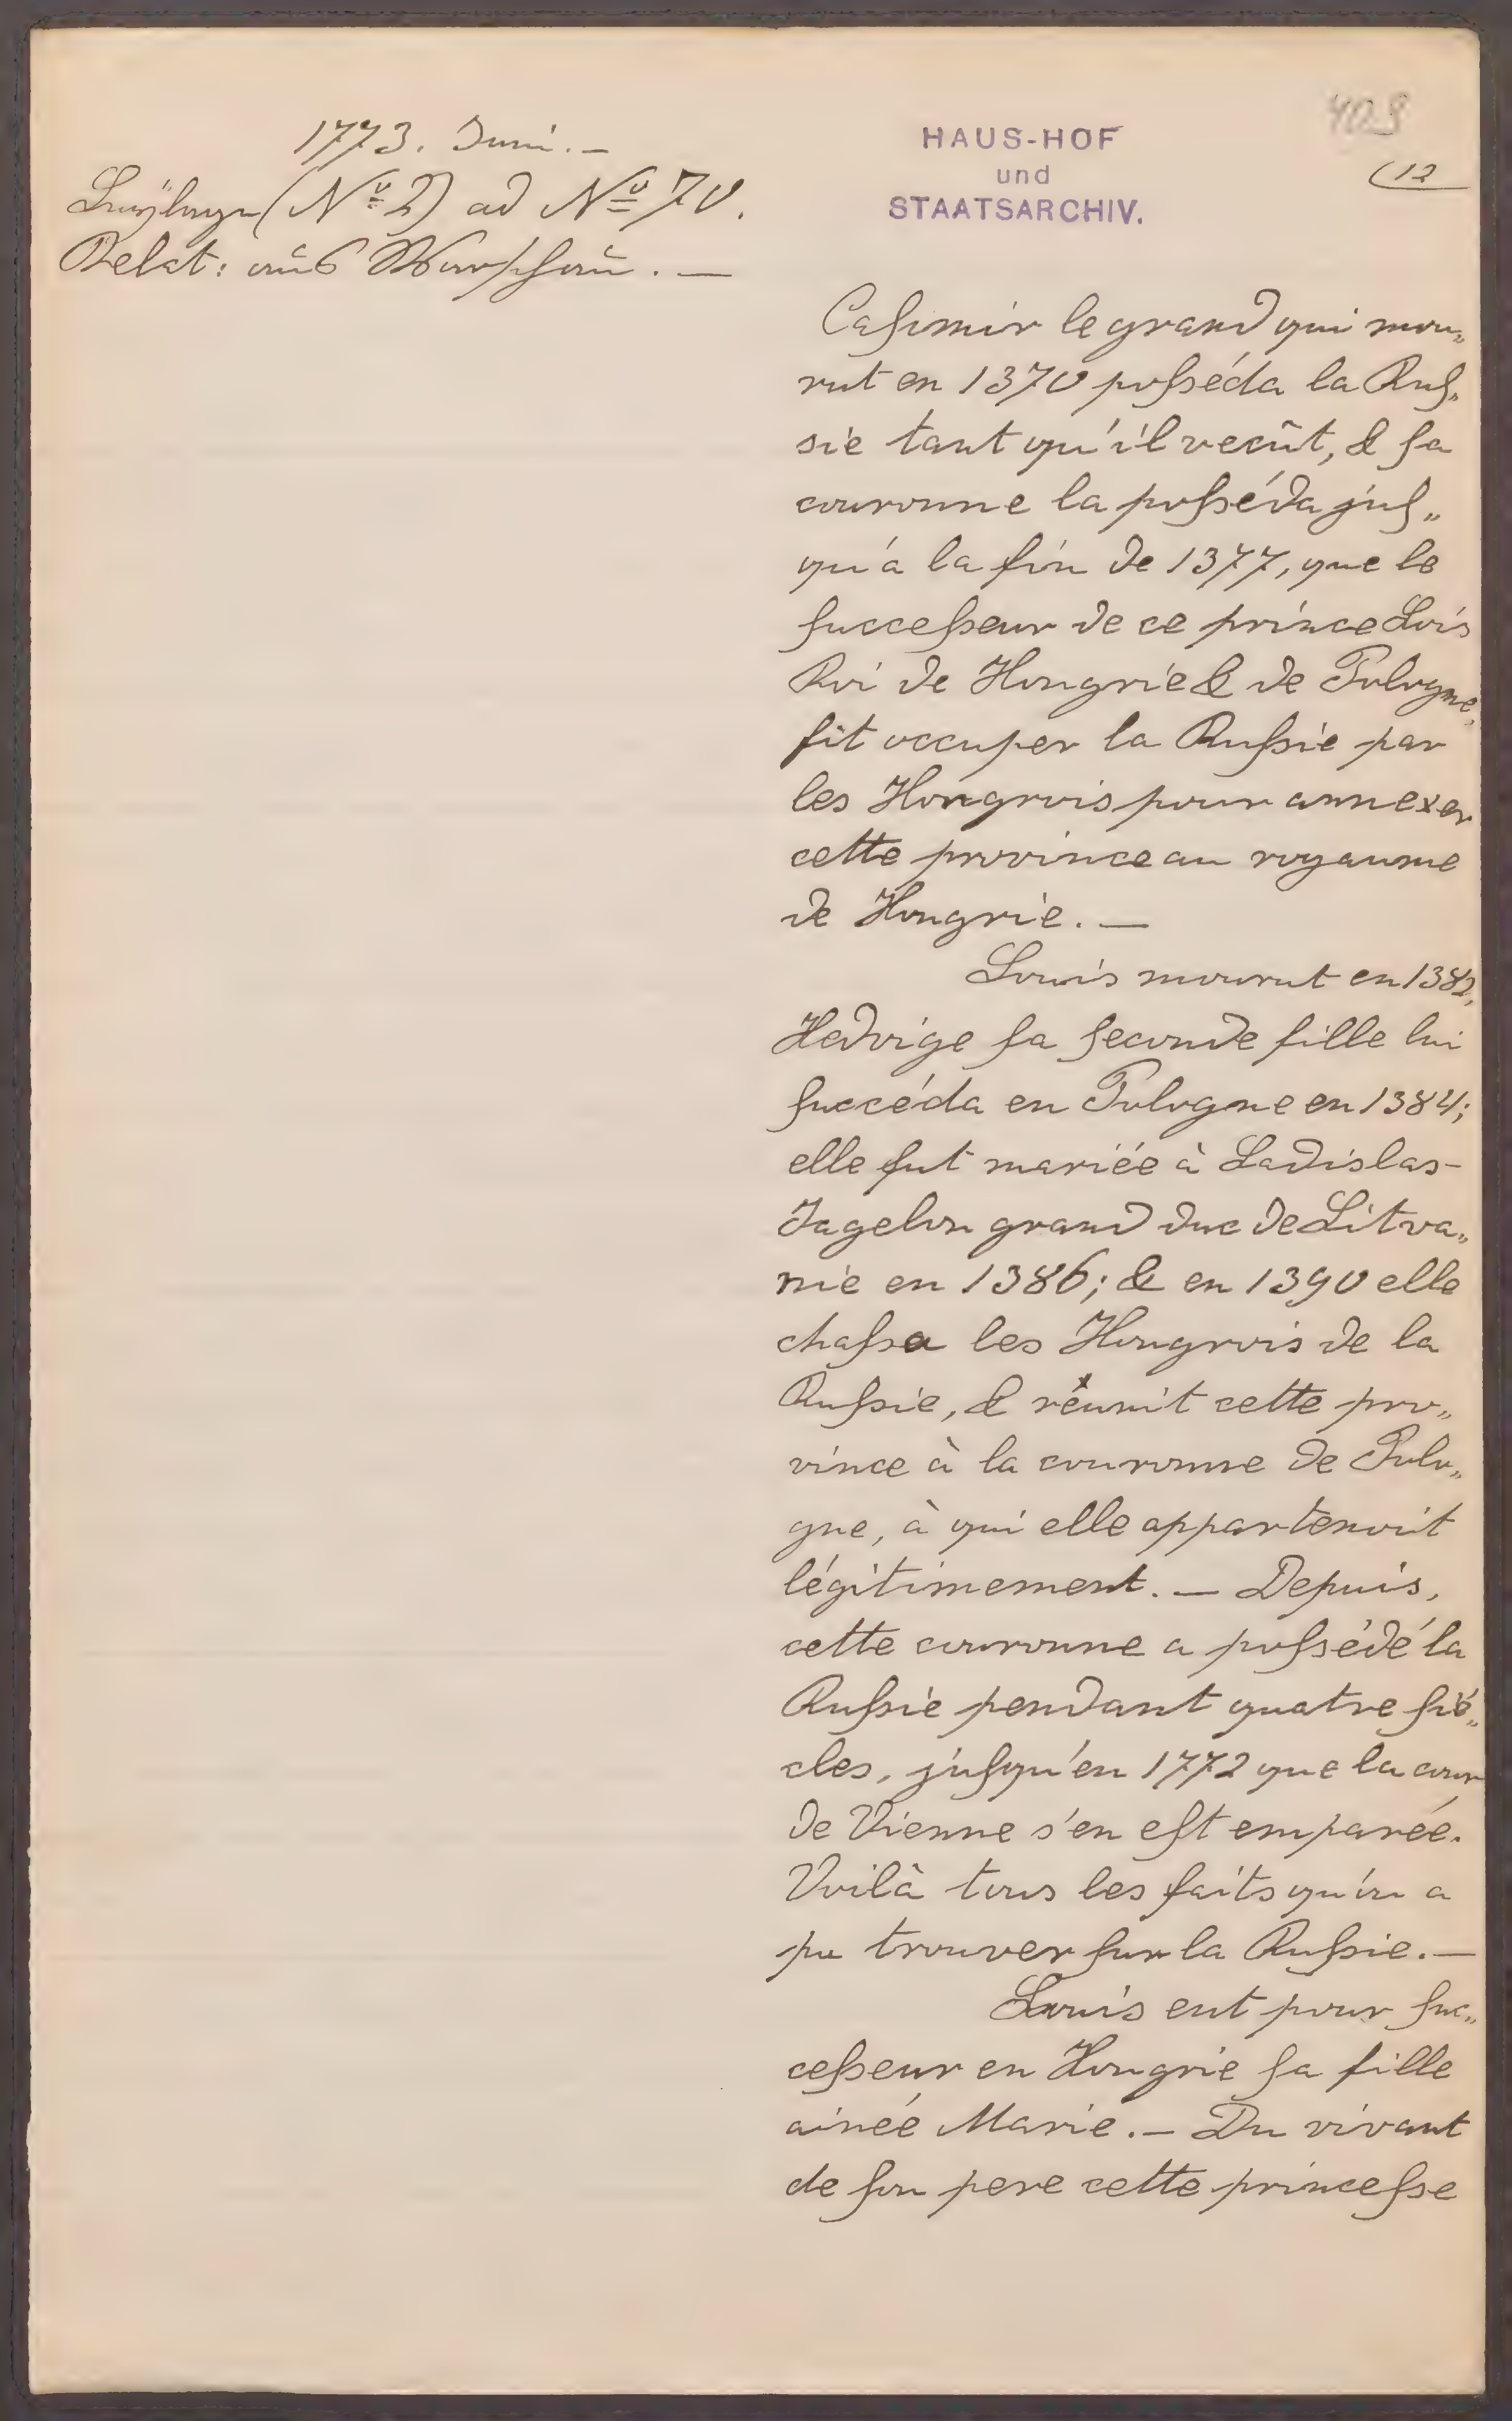 1773. Juni. —
Beÿlage (Nº 2) ad Nº 70.
Relat: aus Warschau. —
HAUS-HOF
und
STAATSARCHIV.
409
(12
Casimir le grand qui mou„
rut en 1370 posséda la Rus„
sie tant qu'il vecût, & sa
couronne la posséda jus„
qu'à la fin de 1377, que le
successeur de ce prince Lois
Roi de Hongrie & de Pologne,
fit occuper la Russie par
les Hongrois pour annexer
cette province au royaume
de Hongrie. —
Louis mourut en 1382,
Hedvige sa seconde fille lui
succéda en Pologne en 1384;
elle fut mariée à Ladislas-
Jagelon grand duc de Litva„
nie en 1386; & en 1390 elle
chassa les Hongrois de la
Russie, & réunit cette pro„
vince à la couronne de Polo„
gne, à qui elle appartenoit
légitimement. — Depuis,
cette couronne a possédé la
Russie pendant quatre siè„
cles, jusqu'en 1772 que la cour
de Vienne s'en est emparée.
Voilà tous les faits qu'on a
pu trouver sur la Russie. —
Louis eut pour suc„
cesseur en Hongrie sa fille
ainée Marie. — Du vivant
de son pere cette princesse